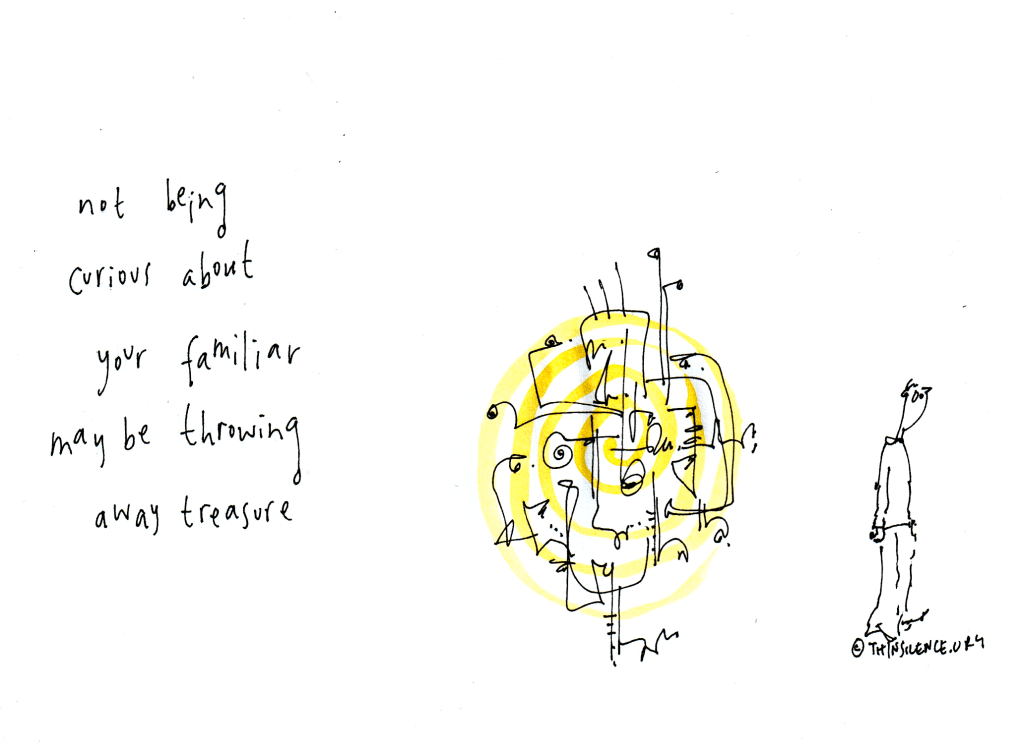 not being
curious about
your familiar
may be throwing
away treasure
© THINSILENCE.ORG